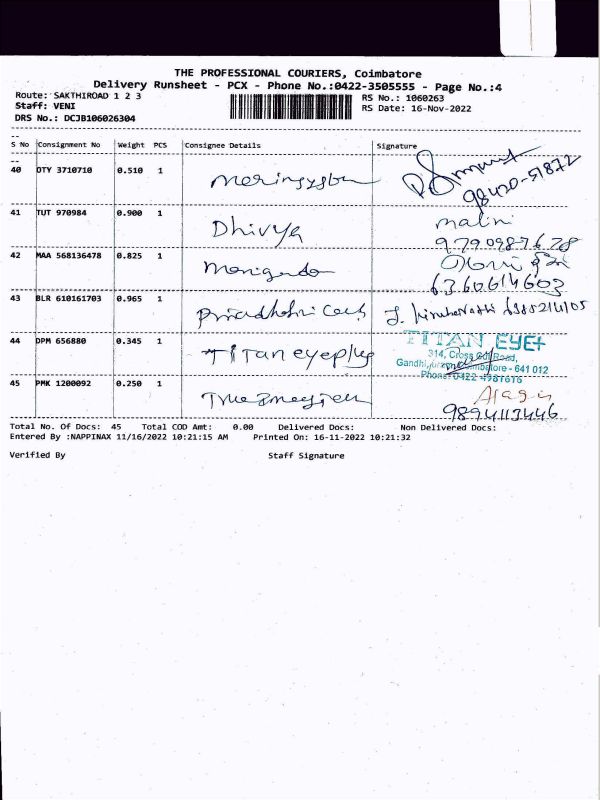 THE PROFESSIONAL COURIERS, Coimbatore
Delivery Runsheet - PCX - Phone No.:0422-3505555 - Page No.:4
Route: SAKTHIROAD 1 2 3
RS No.: 1060263
Staff: VENI
RS Date: 16-Nov-2022
DRS No.: DCJB106026304
S No Consignment No Weight PCS Consignee Details Signature
40 OTY 3710710 0.510 1
98420-51872
41 TUT 970984 0.900 1 Dhivya malini
9790987628
42 MAA 568136478 0.825 1
6360614603
43 BLR 610161703 0.965 1
44 DPM 656880 0.345 1 Titan eyeplus TITAN EYE+
314, Cross Cut Road,
Gandhipuram, Coimbatore - 641 012
Phone: 0422 4981616
45 PMK 1200092 0.250 1
9894113446
Total No. Of Docs: 45 Total COD Amt: 0.00 Delivered Docs: Non Delivered Docs:
Entered By :NAPPINAX 11/16/2022 10:21:15 AM Printed On: 16-11-2022 10:21:32
Verified By Staff Signature